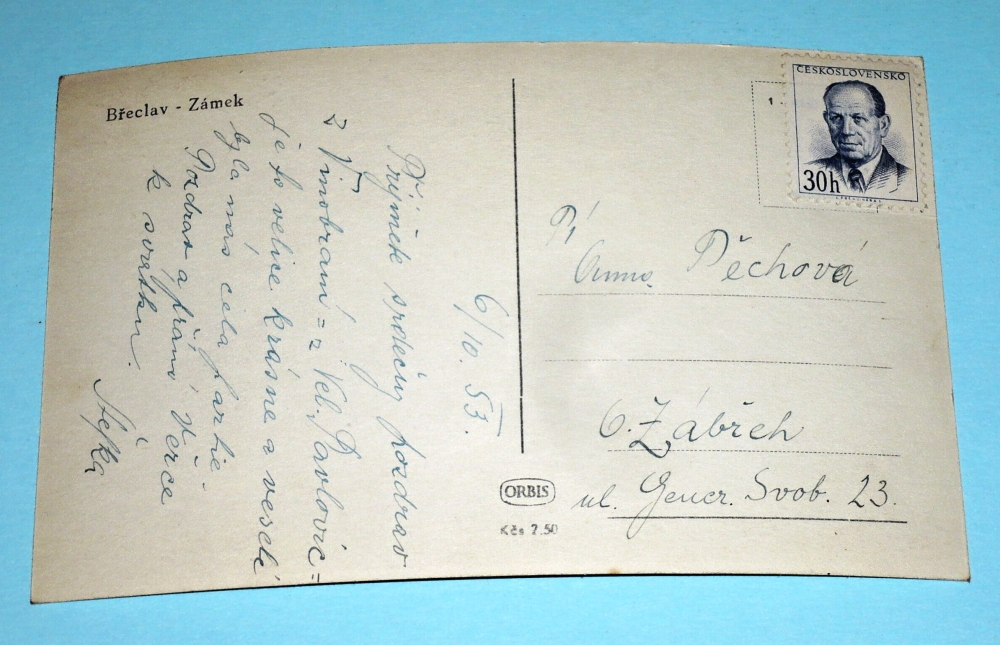 Břeclav - Zámek
6/10. 53.
Přijměte srdečný pozdrav
z Vinobraní = z Vel. Pavlovic =
je to velice krásné a veselé
byla nás celá partie.
Pozdrav a přání Věrce
k svátku.
ČESKOSLOVENSKO
30h
1.
Pí
Anna Pěchová
Zábřeh
ul. Gener. Svob. 23.
ORBIS
Kčs 7.50